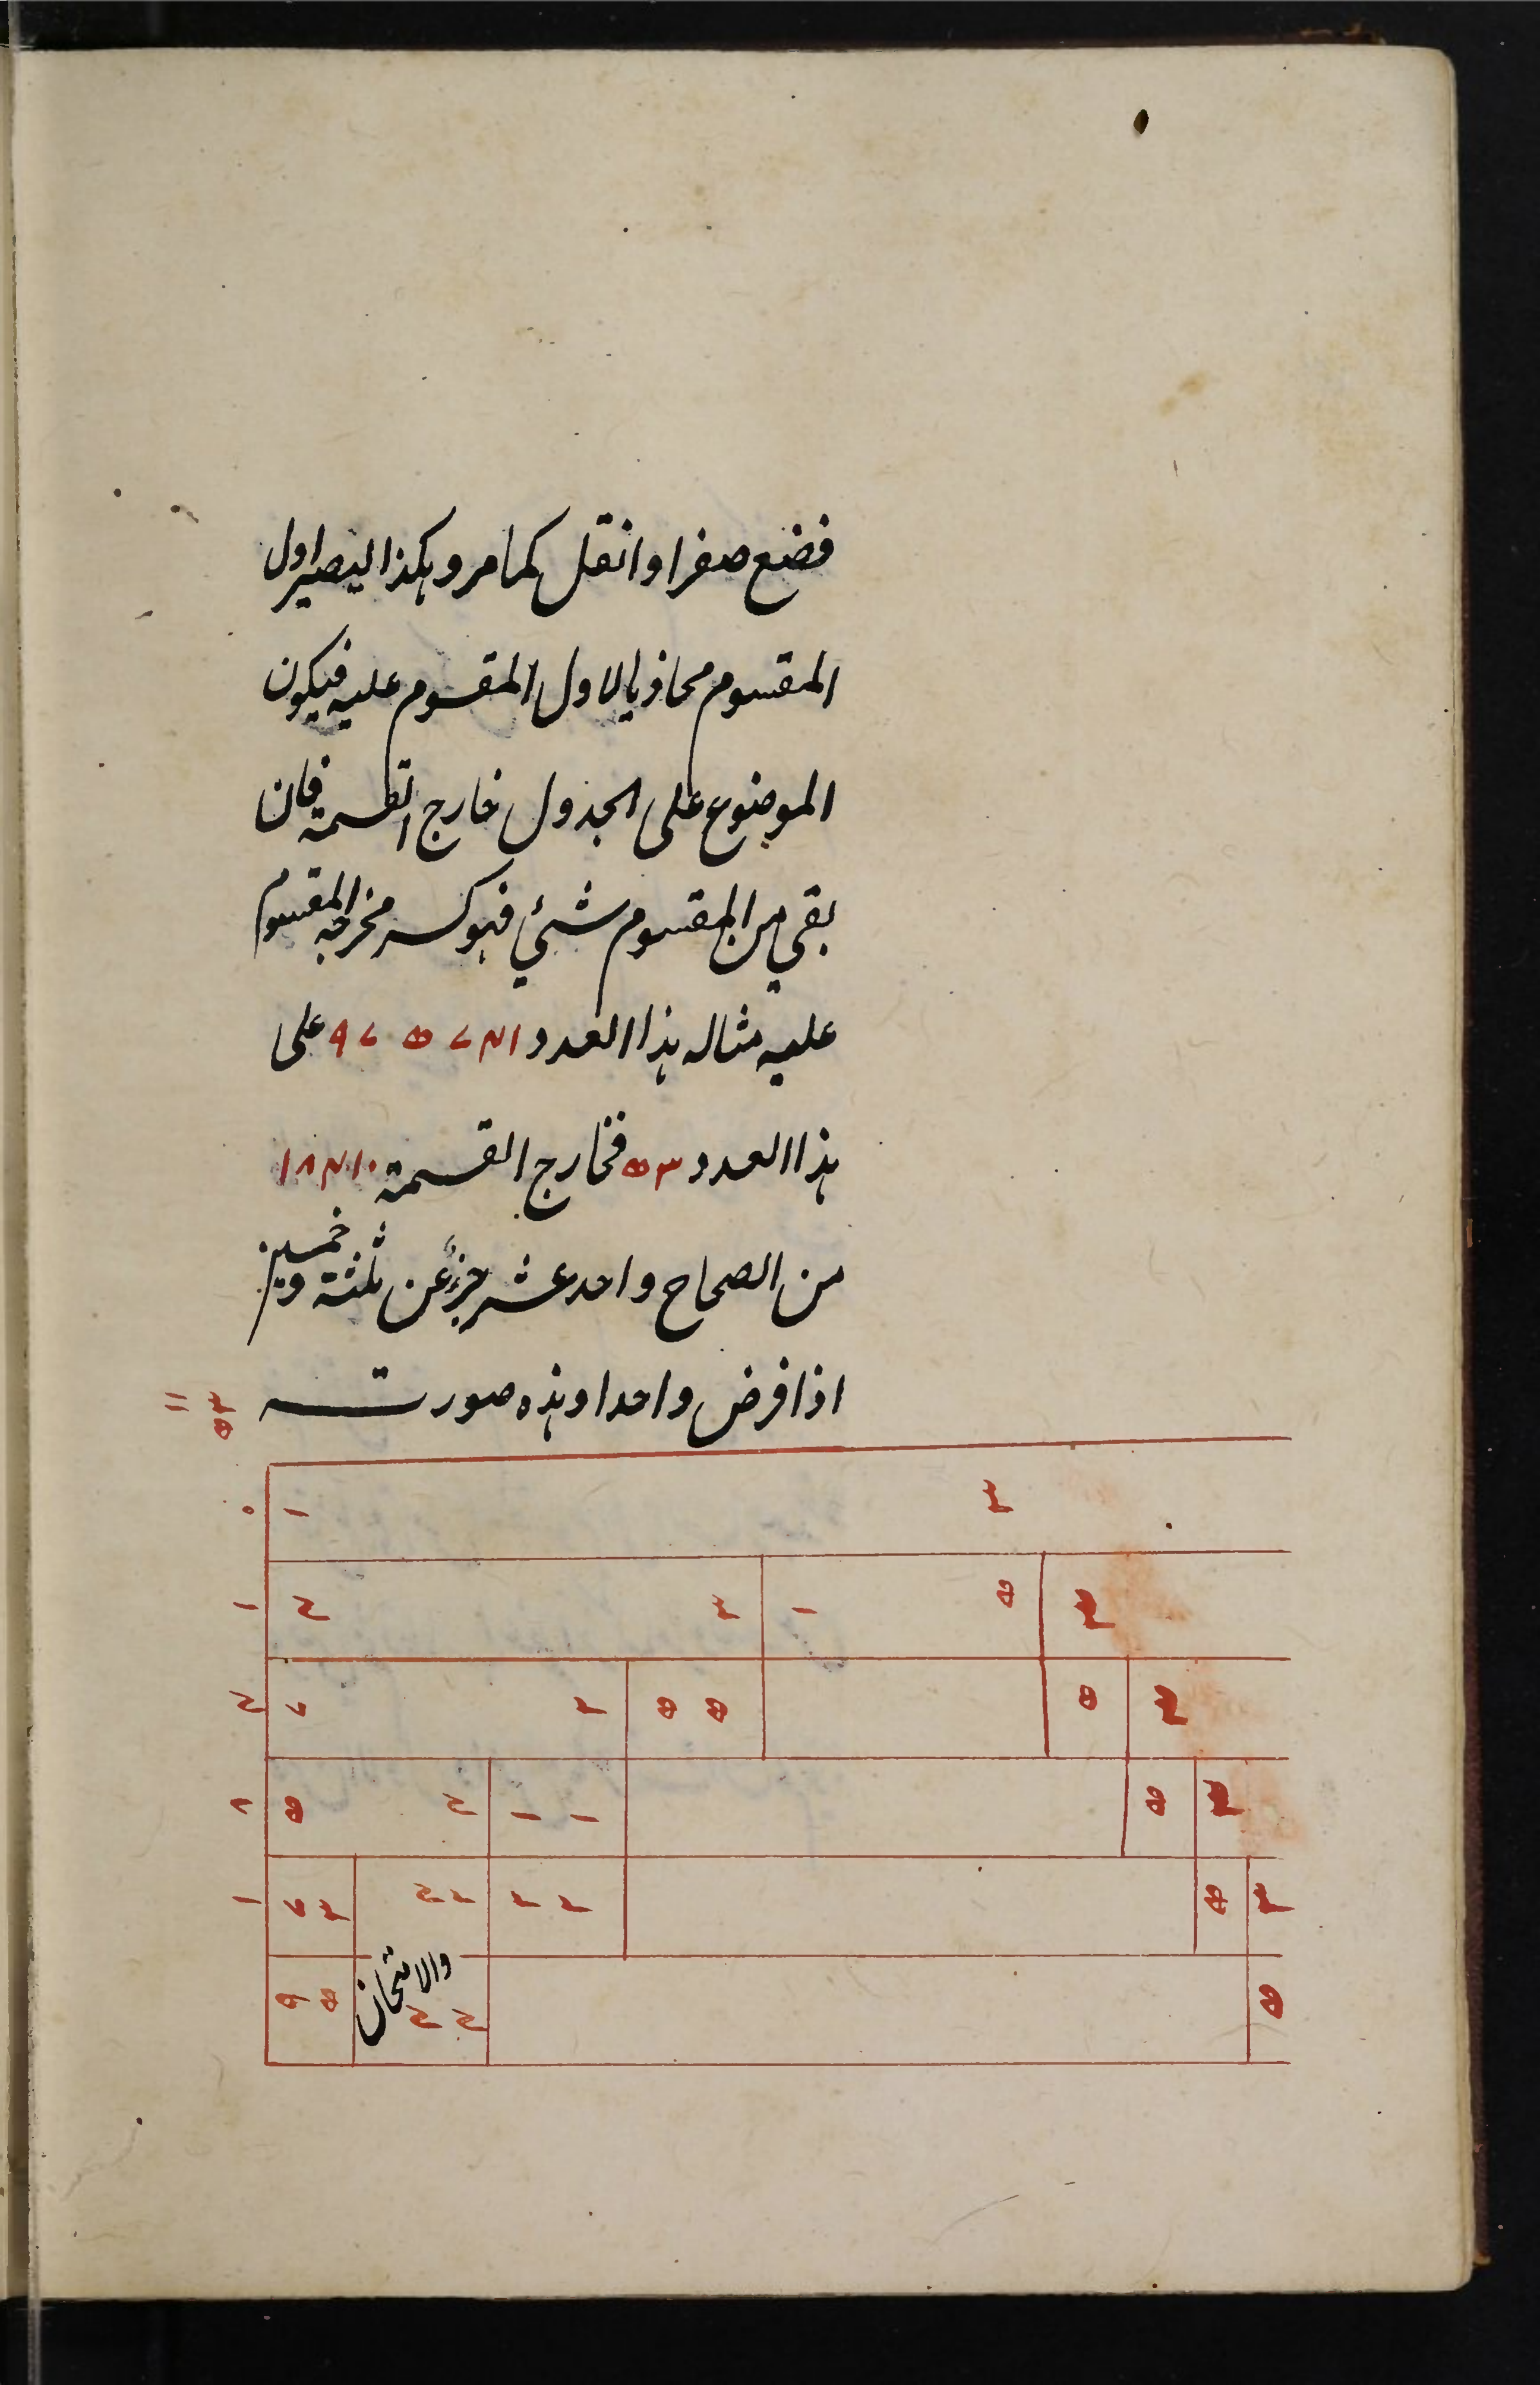 فضع صفرا وانقل كما مر وهكذا ليصير اول
المقسوم محاذيا لاول المقسوم عليه فيكون
الموضوع على الجدول خارج القسمة فان
بقي من المقسوم شئ فهو كسر مخرجه المقسوم
عليه مثاله هذا العدد ٩٧٥٧٤١ على
هذا العدد ٥٣ فخارج القسمة ١٨٤١٠
من الصحاح واحد عشر جزء من ثلثة وخمسين
اذا فرض واحدا وهذه صورته
١١ ٥٣
٠ ١ ٣
١ ٤ ٣ ١ ٥ ٣
٤ ٧ ٢ ٥ ٥ ٥ ٣
٨ ٥ ٤ ١ ١ ٥ ٣
١ ٧ ٣ ٤ ٢ ٢ ٢ ٥ ٣
٩ ٥ ٤ ٤ ٥
والامتحان